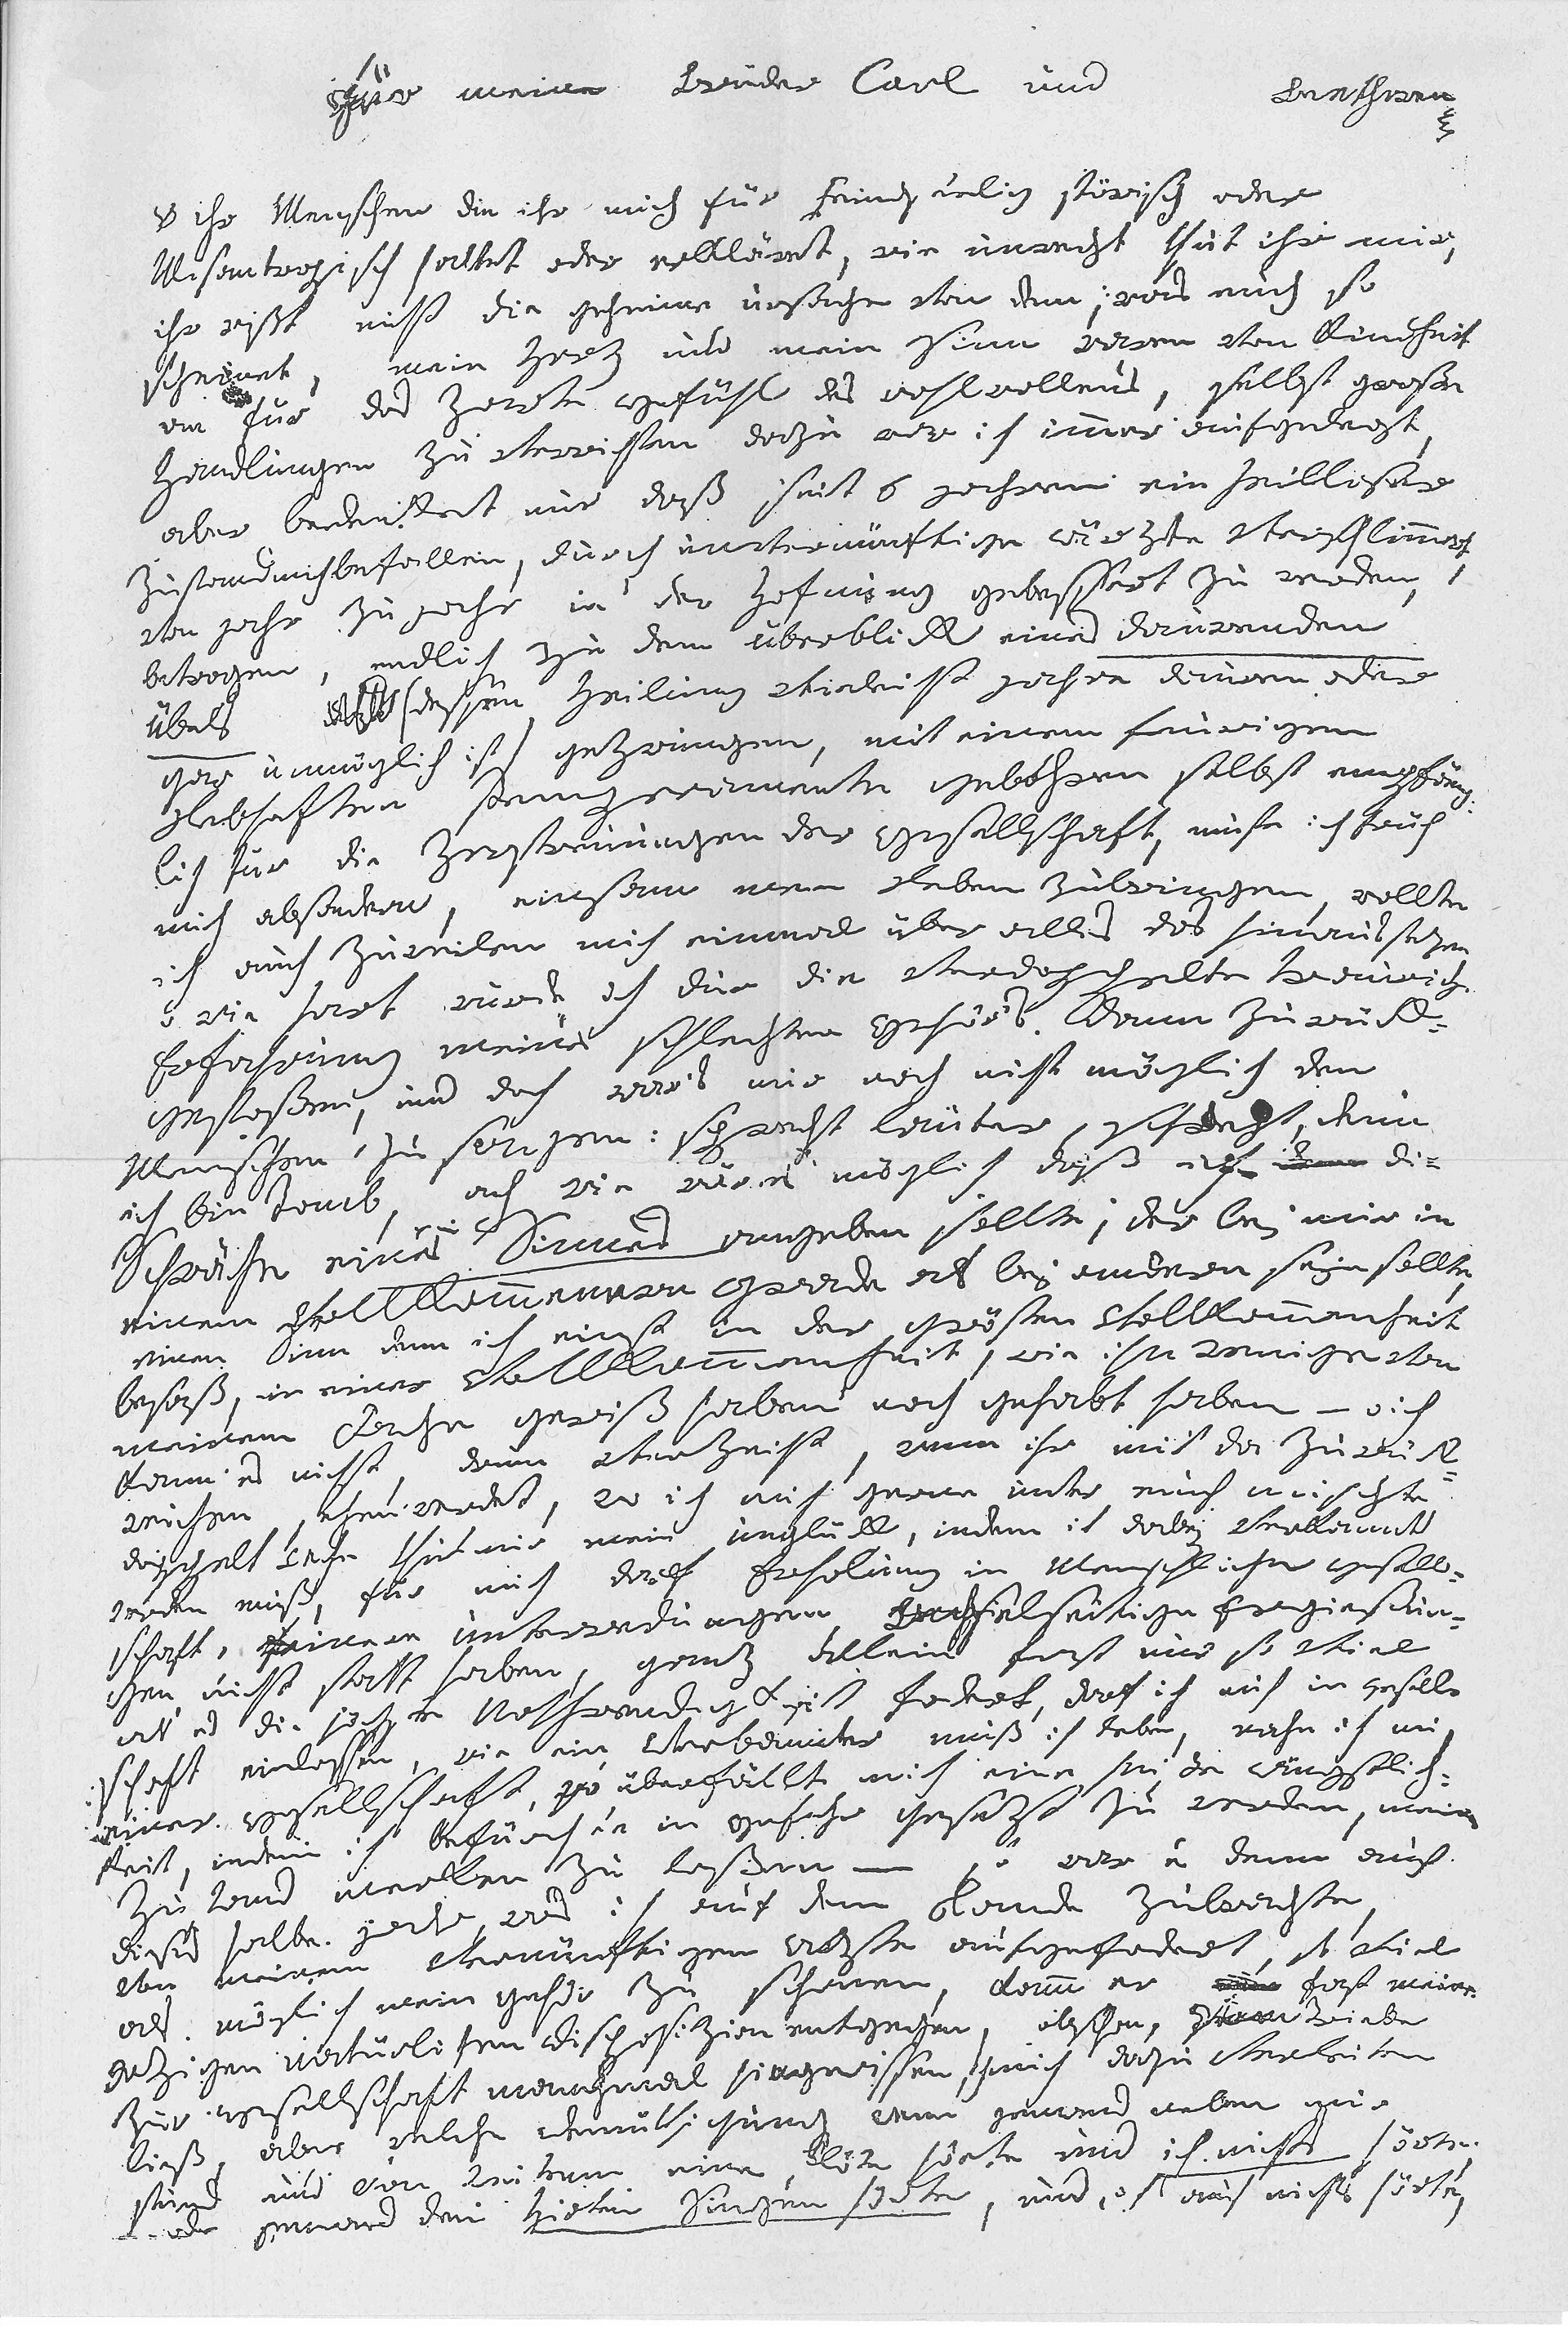 für meine Brüder Carl und Beethoven
o ihr Menschen die ihr mich für Feindseelig störisch oder
Misantropisch haltet oder erkläret, wie unrecht thut ihr mir,
ihr wißt nicht die geheime ursache von dem, was euch so
scheinet, mein Herz und mein Sinn waren von Kindheit
an für das Zarte Gefühl des wohlwollens, selbst große
Handlungen zu verrichten dazu war ich immer aufgelegt,
aber bedenket nur daß seit 6 jahren ein heilloser
Zustand mich befallen, durch unvernünftige ärzte verschlimmert,
von jahr zu jahr in der Hofnung gebessert zu werden,
betrogen, endlich zu dem überblick eines daurenden
Übels (dessen Heilung vieleicht jahre dauren oder
gar unmöglich ist) gezwungen, mit einem feurigen
Lebhaften Temperamente gebohren selbst empfäng-
lich für die Zerstreuungen der Gesellschaft, muste ich früh
mich absondern, einsam mein Leben zubringen, wollte
ich auch zuweilen mich einmal über alles das hinaussezen
o wie hart wurde ich dur die verdoppelte traurige
Erfahrung meines schlechten Gehör's Dann zurück-
gestoßen, und doch war's mir noch nicht möglich den
Menschen zu sagen: sprecht lauter, schreyt, denn
ich bin Taub, ach wie wär es möglich daß ich die
Schwäche eines Sinnes angeben sollte, der bej mir in
einem Vollkommenern Grade als bej andern sejn sollte,
einen Sinn denn ich einst in der grösten Vollkommenheit
besaß, in einer Vollkommenheit, wie ihn wenige von
meinem Fache gewiß haben noch gehabt haben – o ich
kann es nicht, drum verzeiht, wenn ihr mich da zurück-
weichen sehen werdet, wo ich mich gerne unter euch mischte
doppelt Wehe thut mir mein unglück, indem ich dabej verkannt
werden muß, für mich darf Erholung in Menschlicher Gesell-
schaft, feinere unterredungen, Wechselseitige Ergießun-
gen nicht statt haben, ganz allein fast nur so viel
als es die höchste Nothwendigkeit fodert, darf ich mich in Gesell-
schaft einlassen, wie ein Verbannter muß ich leben, nahe ich mich
einer Gesellschaft, so überfällt mich eine heiße Ängstlich-
keit, indem ich befürchte in Gefahr gesetzt zu werden, meinen
Zustand merken zu laßen – so war es denn auch
dieses halbe jahr, was ich auf dem Lande zubrachte,
von meinem vernünftigen Arzte aufgefodert, so viel
als möglich mein Gehör zu schonen, kamm er fast meiner
jetzigen natürlichen Disposizion entgegen, obschon, vom Triebe
zur Gesellschaft manchmal hingerissen, ich mich dazu verleiten
ließ, aber welche Demüthigung wenn jemand neben mir
stund und von weitem eine Flöte hörte und ich nichts hörte,
oder jemand den Hirten Singen hörte, und ich auch nichts hörte,